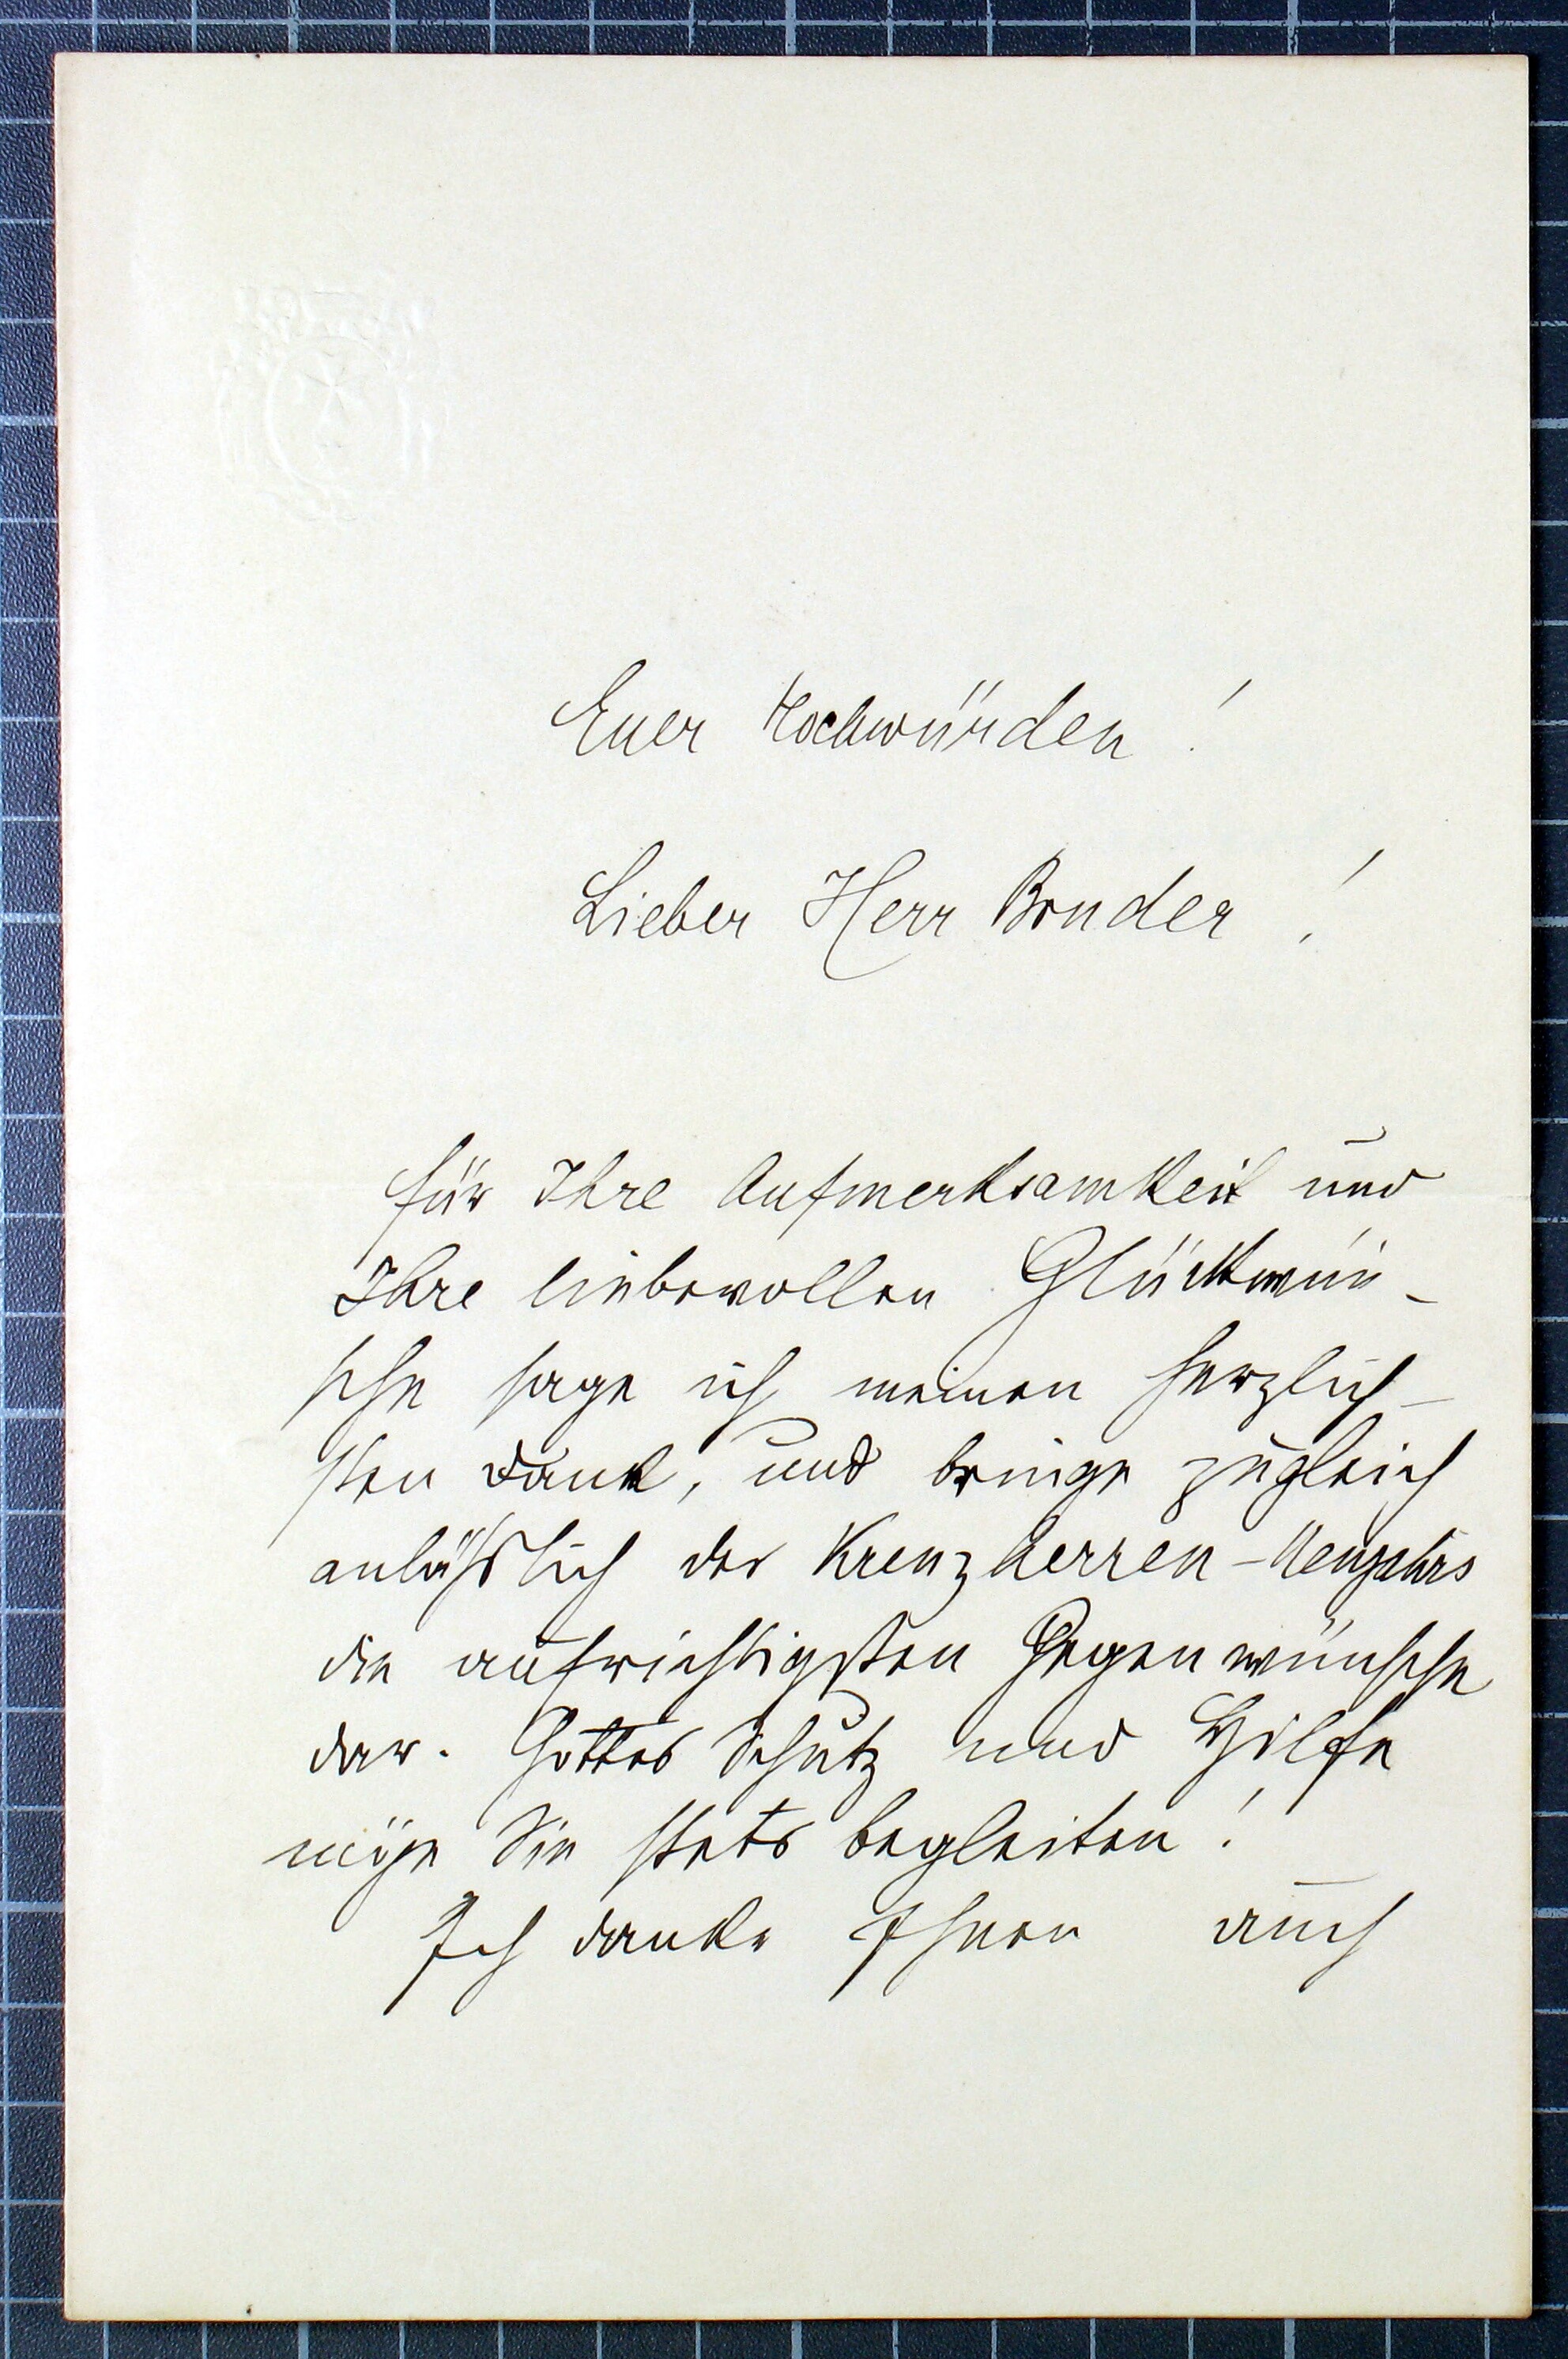 Euer Hochwürden!
Lieber Herr Bruder!
für Ihre Aufmerksamkeit und
Ihre liebevollen Glückwün-
sche sage ich meinen herzlich-
sten Dank, und bringe zugleich
anläßlich des Kreuzherren-Neujahrs
die aufrichtigsten Gegenwünsche
dar. Gottes Schutz und Hilfe
möge Sie stets begleiten!
Ich danke Ihnen auch